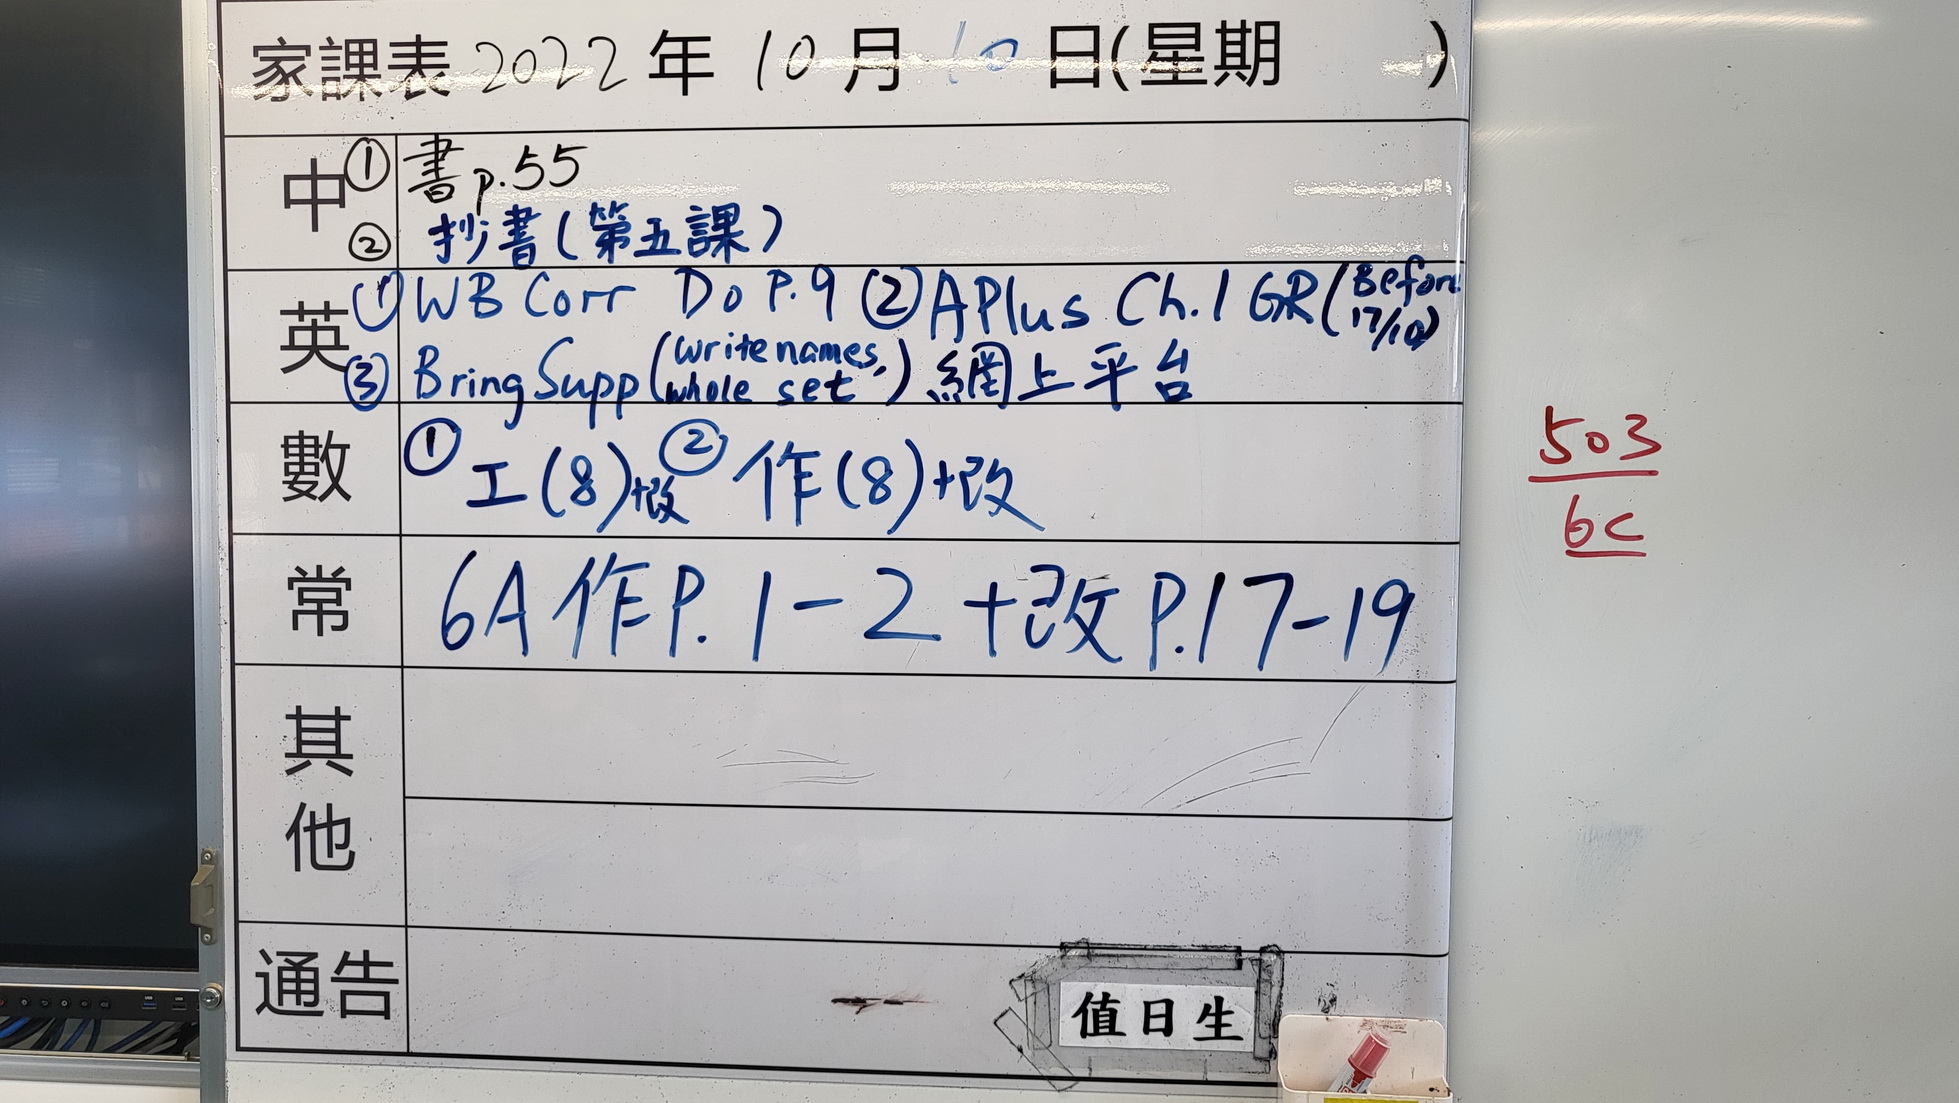 家課表 2022年 10月 10日(星期 )
中 ① 書 p.55
② 抄書(第五課)
英 ① WB Corr Do P.9 ② APlus Ch.1 GR (Before 17/10)
③ Bring Supp (write names, whole set) 網上平台
數 ① 工(8)+改 ② 作(8)+改
常 6A 作 P.1-2 +改 P.17-19
其他
通告
值日生
503
6C